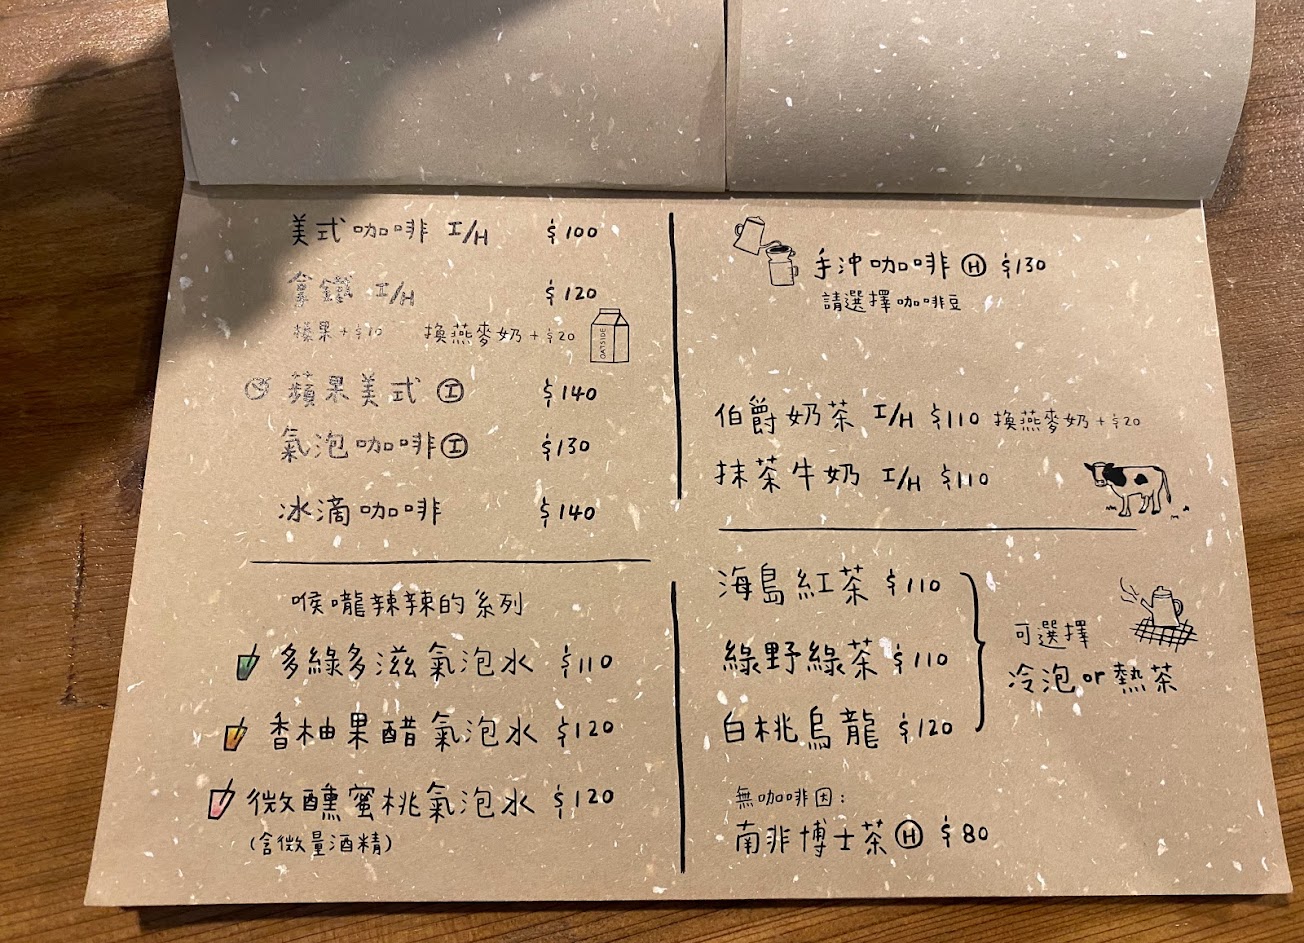 美式咖啡 I/H $100
拿鐵 I/H $120
榛果+$10 換燕麥奶+$20
OATSIDE
蘋果美式 Ⓘ $140
氣泡咖啡 Ⓘ $130
冰滴咖啡 $140
喉嚨辣辣的系列
多綠多滋氣泡水 $110
香柚果醋氣泡水 $120
微醺蜜桃氣泡水 $120
(含微量酒精)
手沖咖啡 Ⓗ $130
請選擇咖啡豆
伯爵奶茶 I/H $110 換燕麥奶+$20
抹茶牛奶 I/H $110
海島紅茶 $110
綠野綠茶 $110
白桃烏龍 $120
可選擇
冷泡or熱茶
無咖啡因:
南非博士茶 Ⓗ $80